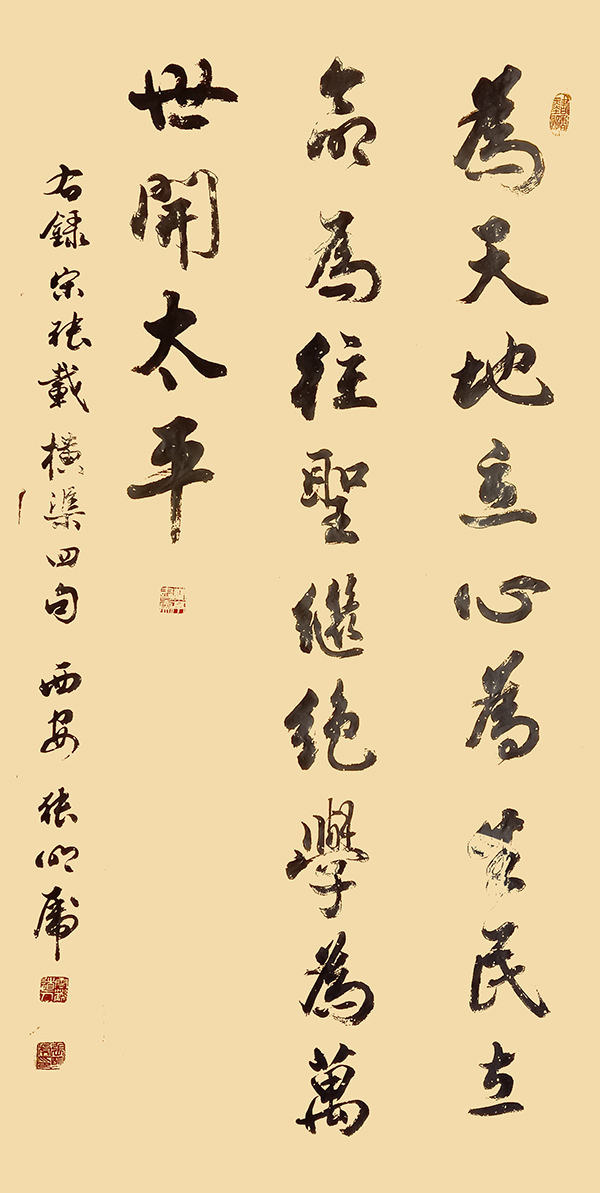 為天地立心為生民立
命為往聖繼絕學為萬
世開太平
右錄宋張載橫渠四句 西安 張明